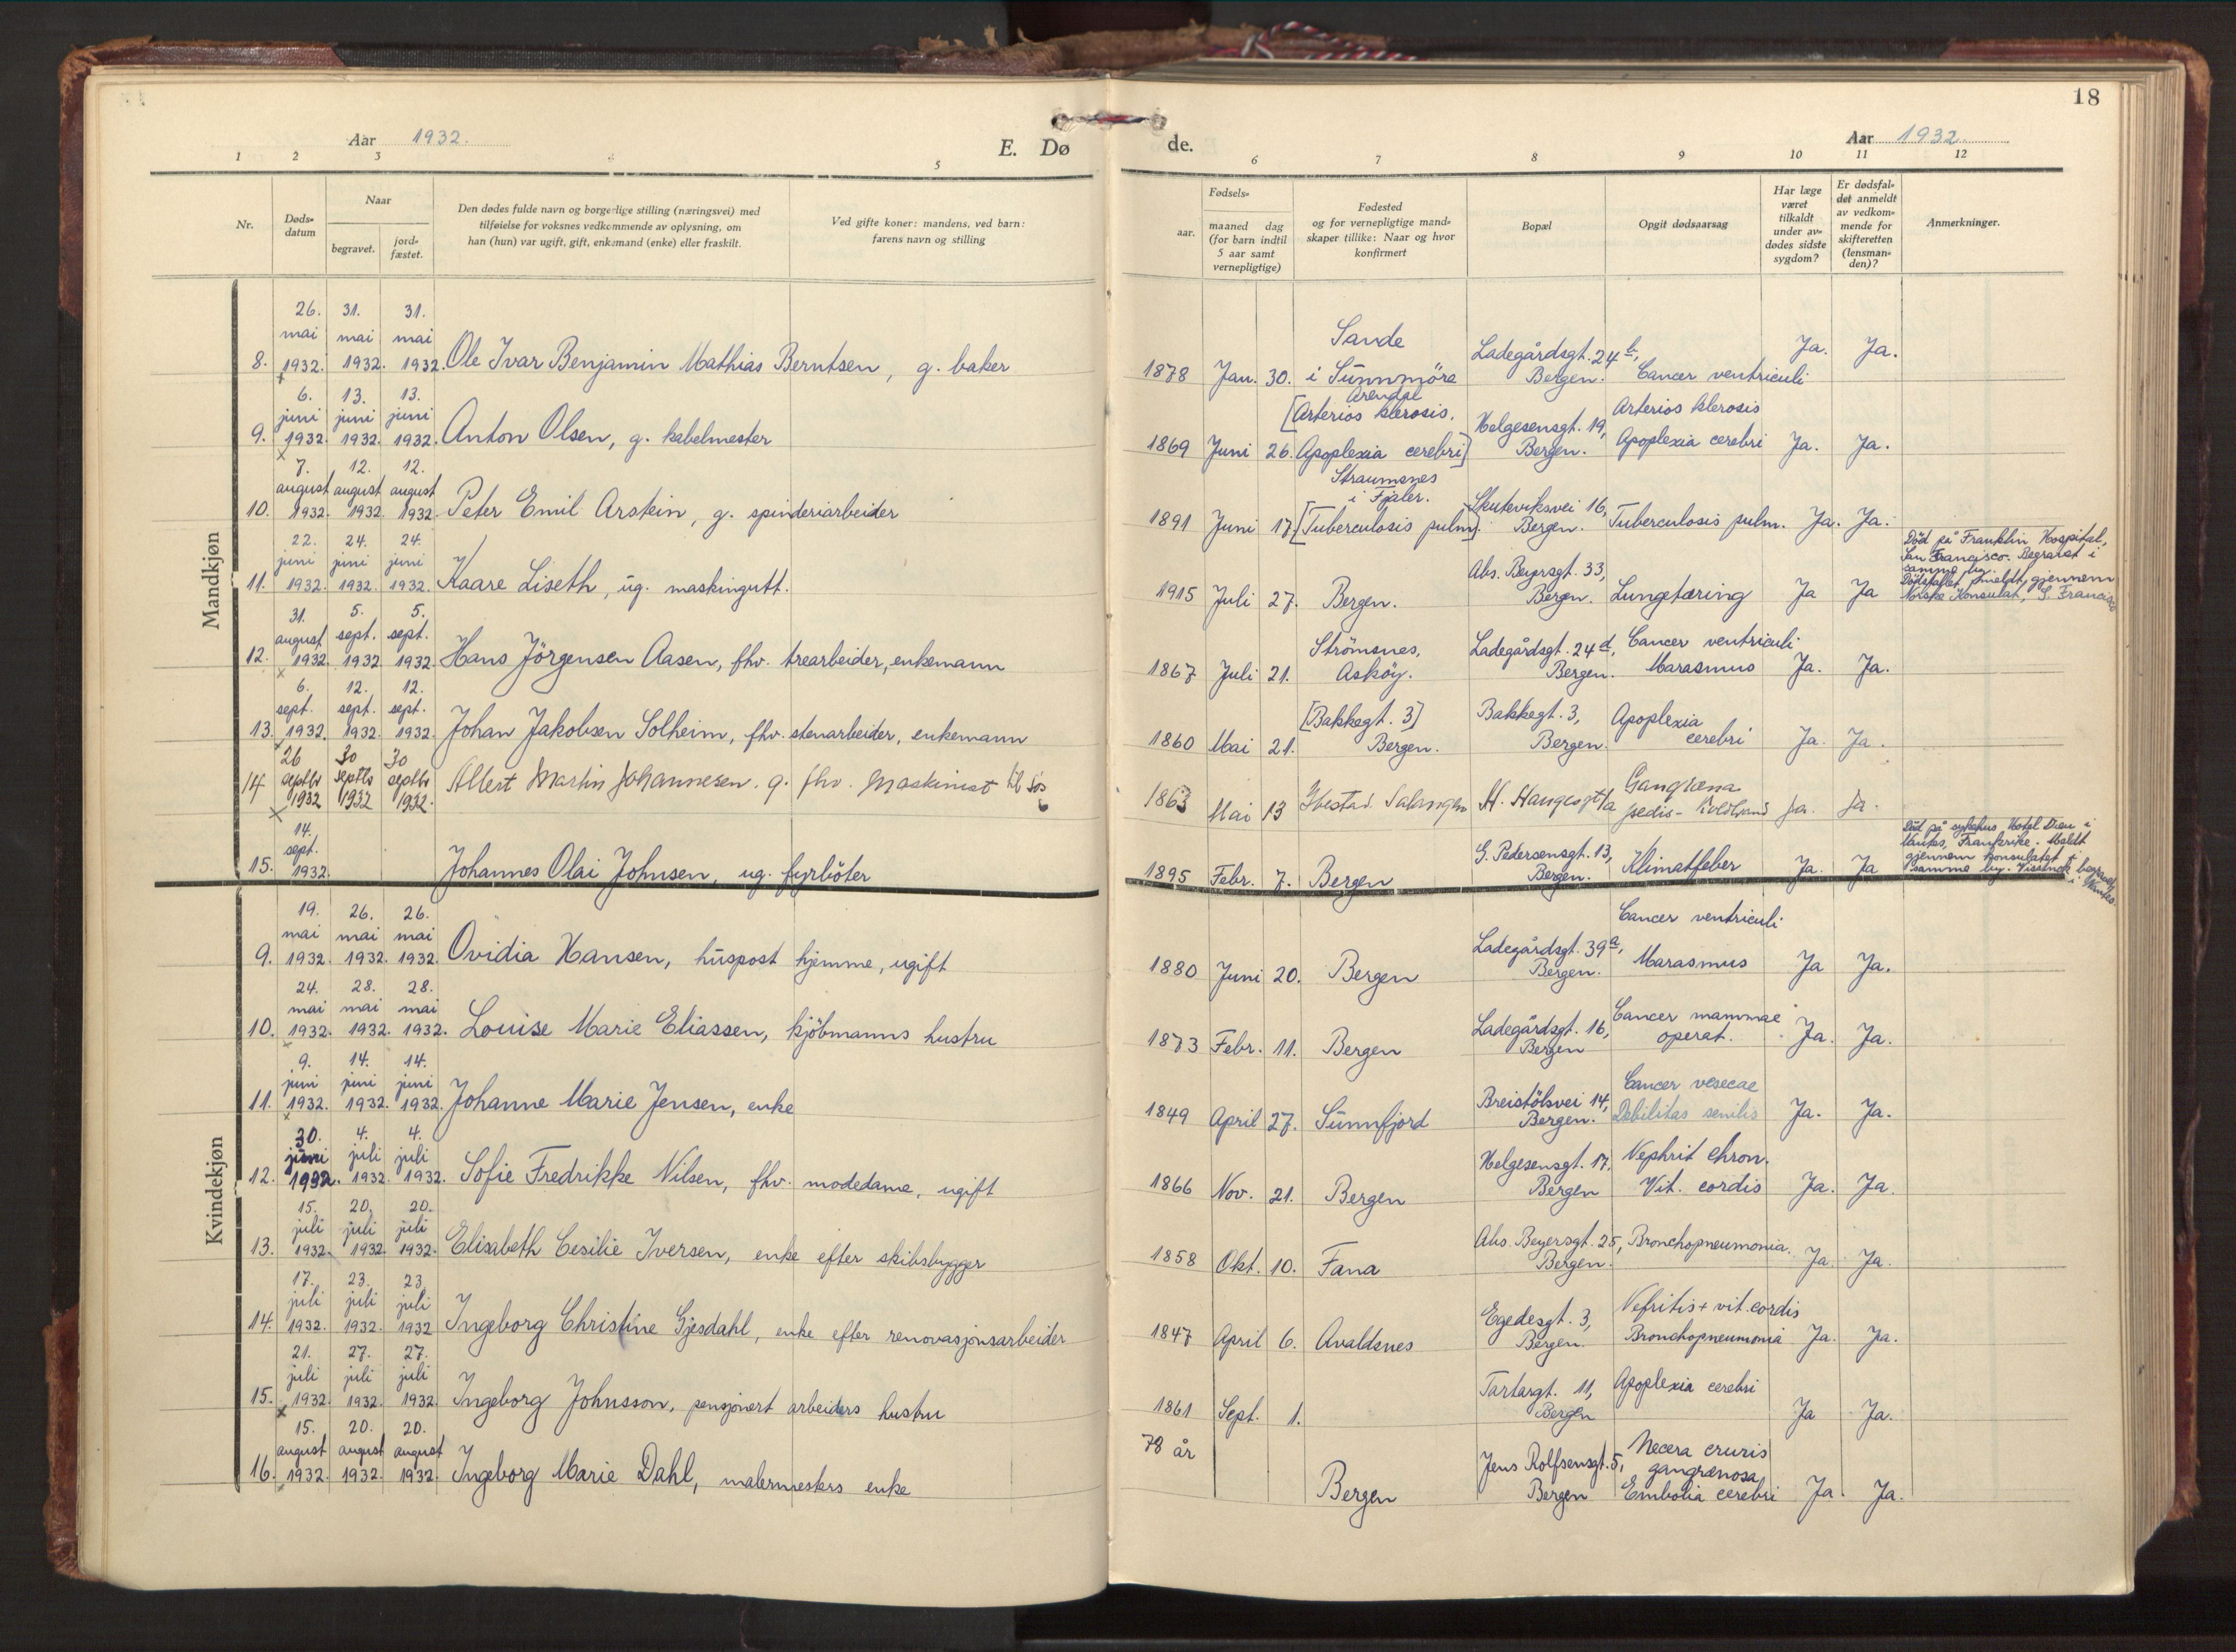 18
Aar 1932.
E. Dø
de.
Aar 1932.
1 2 3 4 5
6 7 8 9 10 11 12
Nr.
Døds-
datum
Naar
begravet.
jord-
fæstet.
Den dødes fulde navn og borgerlige stilling (næringsvei) med
tilføielse for voksnes vedkommende av oplysning, om
han (hun) var ugift, gift, enkemand (enke) eller fraskilt.
Ved gifte koner: mandens, ved barn:
farens navn og stilling
Fødsels-
aar.
maaned dag
(for barn indtil
5 aar samt
vernepligtige)
Fødested
og for vernepligtige mand-
skaper tillike: Naar og hvor
konfirmert
Bopæl
Opgit dødsaarsag
Har læge
været
tilkaldt
under av-
dødes sidste
sygdom?
Er dødsfal-
det anmeldt
av vedkom-
mende for
skifteretten
(lensman-
den)?
Anmerkninger.
Mandkjøn
26. 31. 31.
mai mai mai
8. 1932. 1932. 1932. Ole Ivar Benjamin Mathias Berntsen, g. baker
Sande
1878 Jan. 30. i Sunnmöre
Ladegårdsgt. 24 b,
Bergen. Cancer ventriculi Ja. Ja.
6. 13. 13.
juni juni juni
9. 1932. 1932. 1932. Anton Olsen, g. kabelmester
Arendal
[Arterios klerosis.
1869 Juni 26. Apoplexia cerebri]
Helgesensgt. 19,
Bergen.
Arterios klerosis
Apoplexia cerebri Ja. Ja.
7. 12. 12.
august august august
10. 1932. 1932. 1932. Peter Emil Arstein, g. spinderiarbeider
Straumsnes
i Fjaler.
1891 Juni 17. [Tuberculosis pulm.]
Skuteviksvei 16,
Bergen. Tuberculosis pulm. Ja. Ja.
22. 24. 24.
juni juni juni
11. 1932. 1932. 1932. Kaare Liseth, ug. maskingutt.
1915 Juli 27. Bergen.
Abs. Beyersgt. 33,
Bergen. Lungetæring Ja Ja
Död på Franklin Hospital,
San Francisco. Begravet i
samme by.
Dödsfallet meldt gjennem
Norske Konsulat, S. Francisco
31. 5. 5.
august sept. sept.
12. 1932. 1932. 1932. Hans Jörgensen Aasen, fhv. trearbeider, enkemann
Strömsnes,
1867 Juli 21. Asköy.
Ladegårdsgt. 24 d,
Bergen.
Cancer ventriculi
Marasmus Ja. Ja.
6. 12. 12.
sept. sept. sept.
13. 1932. 1932. 1932. Johan Jakobsen Solheim, fhv. stenarbeider, enkemann
[Bakkegt. 3]
1860 Mai 21. Bergen.
Bakkegt. 3,
Bergen.
Apoplexia
cerebri Ja. Ja.
26 30 30
septbr septbr septbr
14 1932 1932 1932. Albert Martin Johannesen. g. fhv. Maskinist til sjøs
1863 Mai 13 Ibestad. Salangen H. Haugesgt 1a
Gangræna
pedis - Koldbrand Ja. Ja.
14.
sept.
15. 1932. Johannes Olai Johnsen, ug. fyrböter
1895 Febr. 7. Bergen
G. Pedersensgt. 13,
Bergen. Klimatfeber Ja. Ja
Död på sykehus Hotel Dieu i
Nantes, Frankrike. Meldt
gjennem konsulatet i
samme by. begravet
i Nantes.
Kvindekjøn
19. 26. 26.
mai mai mai
9. 1932. 1932. 1932. Ovidia Hansen, huspost hjemme, ugift
1880 Juni 20. Bergen
Ladegårdsgt. 39 a,
Bergen.
Cancer ventriculi
Marasmus Ja Ja.
24. 28. 28.
mai mai mai
10. 1932. 1932. 1932. Louise Marie Eliassen, kjöbmanns hustru
1873 Febr. 11. Bergen
Ladegårdsgt. 16,
Bergen
Cancer mammae
operat. Ja. Ja.
9. 14. 14.
juni juni juni
11. 1932. 1932. 1932. Johanne Marie Jensen, enke
1849 April 27. Sunnfjord
Breistölsvei 14,
Bergen.
Cancer vesecae
Debilitas senilis Ja. Ja.
30. 4. 4.
juni juli juli
12. 1932. 1932. 1932. Sofie Fredrikke Nilsen, fhv. modedame, ugift
1866 Nov. 21. Bergen
Helgesensgt. 17,
Bergen
Nephrit chron.
Vit. cordis Ja. Ja.
15. 20. 20.
juli juli juli
13. 1932. 1932. 1932. Elisabeth Cesilie Iversen, enke efter skibsbygger
1858 Okt. 10. Fana
Abs. Beyersgt. 25,
Bergen. Bronchopneumonia. Ja. Ja.
17. 23. 23.
juli juli juli
14. 1932. 1932. 1932 Ingeborg Christine Gjesdahl, enke efter renovasjonsarbeider
1847 April 6. Avaldsnes
Egedesgt. 3,
Bergen.
Nefritis + vit. cordis
Bronchopneumonia Ja. Ja.
21. 27. 27.
juli juli juli
15. 1932. 1932. 1932. Ingeborg Johnsson, pensjonert arbeiders hustru
1861 Sept. 1.
Tartargt. 11,
Bergen
Apoplexia cerebri
Ja Ja.
15. 20. 20.
august august august
16. 1932. 1932. 1932. Ingeborg Marie Dahl, malermesters enke
78 år
Bergen
Jens Rolfsensgt. 5,
Bergen
cruris
gangrænosa
Embolia cerebri Ja. Ja.